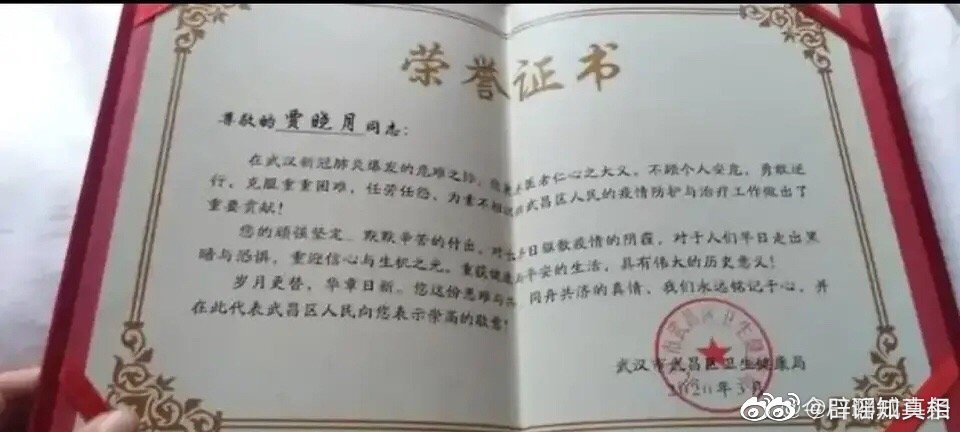 荣誉证书
尊敬的 贾晓月 同志：
在武汉新冠肺炎爆发的危难之际，医者仁心之大义，不顾个人安危，勇敢逆
行，克服重重困难，任劳任怨，为素不相武昌区人民的疫情防护与治疗工作做出了
重要贡献！
您的顽强坚定、默默辛苦的付出，对日驱散疫情的阴霾，对于人们早日走出黑
暗与恐惧，重迎信心与生机之光，重获健康平安的生活，具有伟大的历史意义！
岁月更替，华章日新。您这份患难与共同舟共济的真情，我们永远铭记于心，并
在此代表武昌区人民向您表示崇高的敬意！
武汉市武昌区卫生健康局
市武昌区卫生
2020年3月
@辟谣知真相